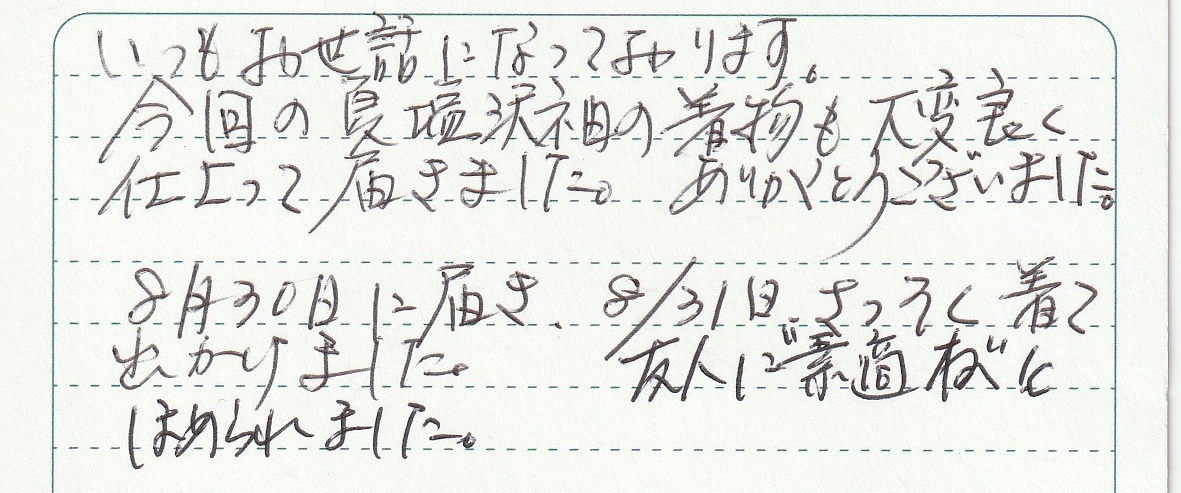 いつもお世話になっております。
今回の夏塩沢紬の着物も大変良く
仕上って届きました。 ありがとうございました。
8月30日に届き、8/31日、さっそく着て
出かけました。 友人に“素適ね”と
ほめられました。